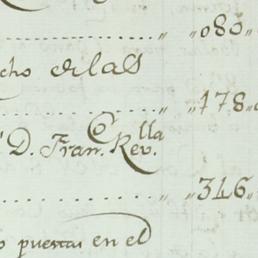 „ „080„
cho de las
„ „178„
D. Fran.co Rev.lla
„ „316„
puestas en el